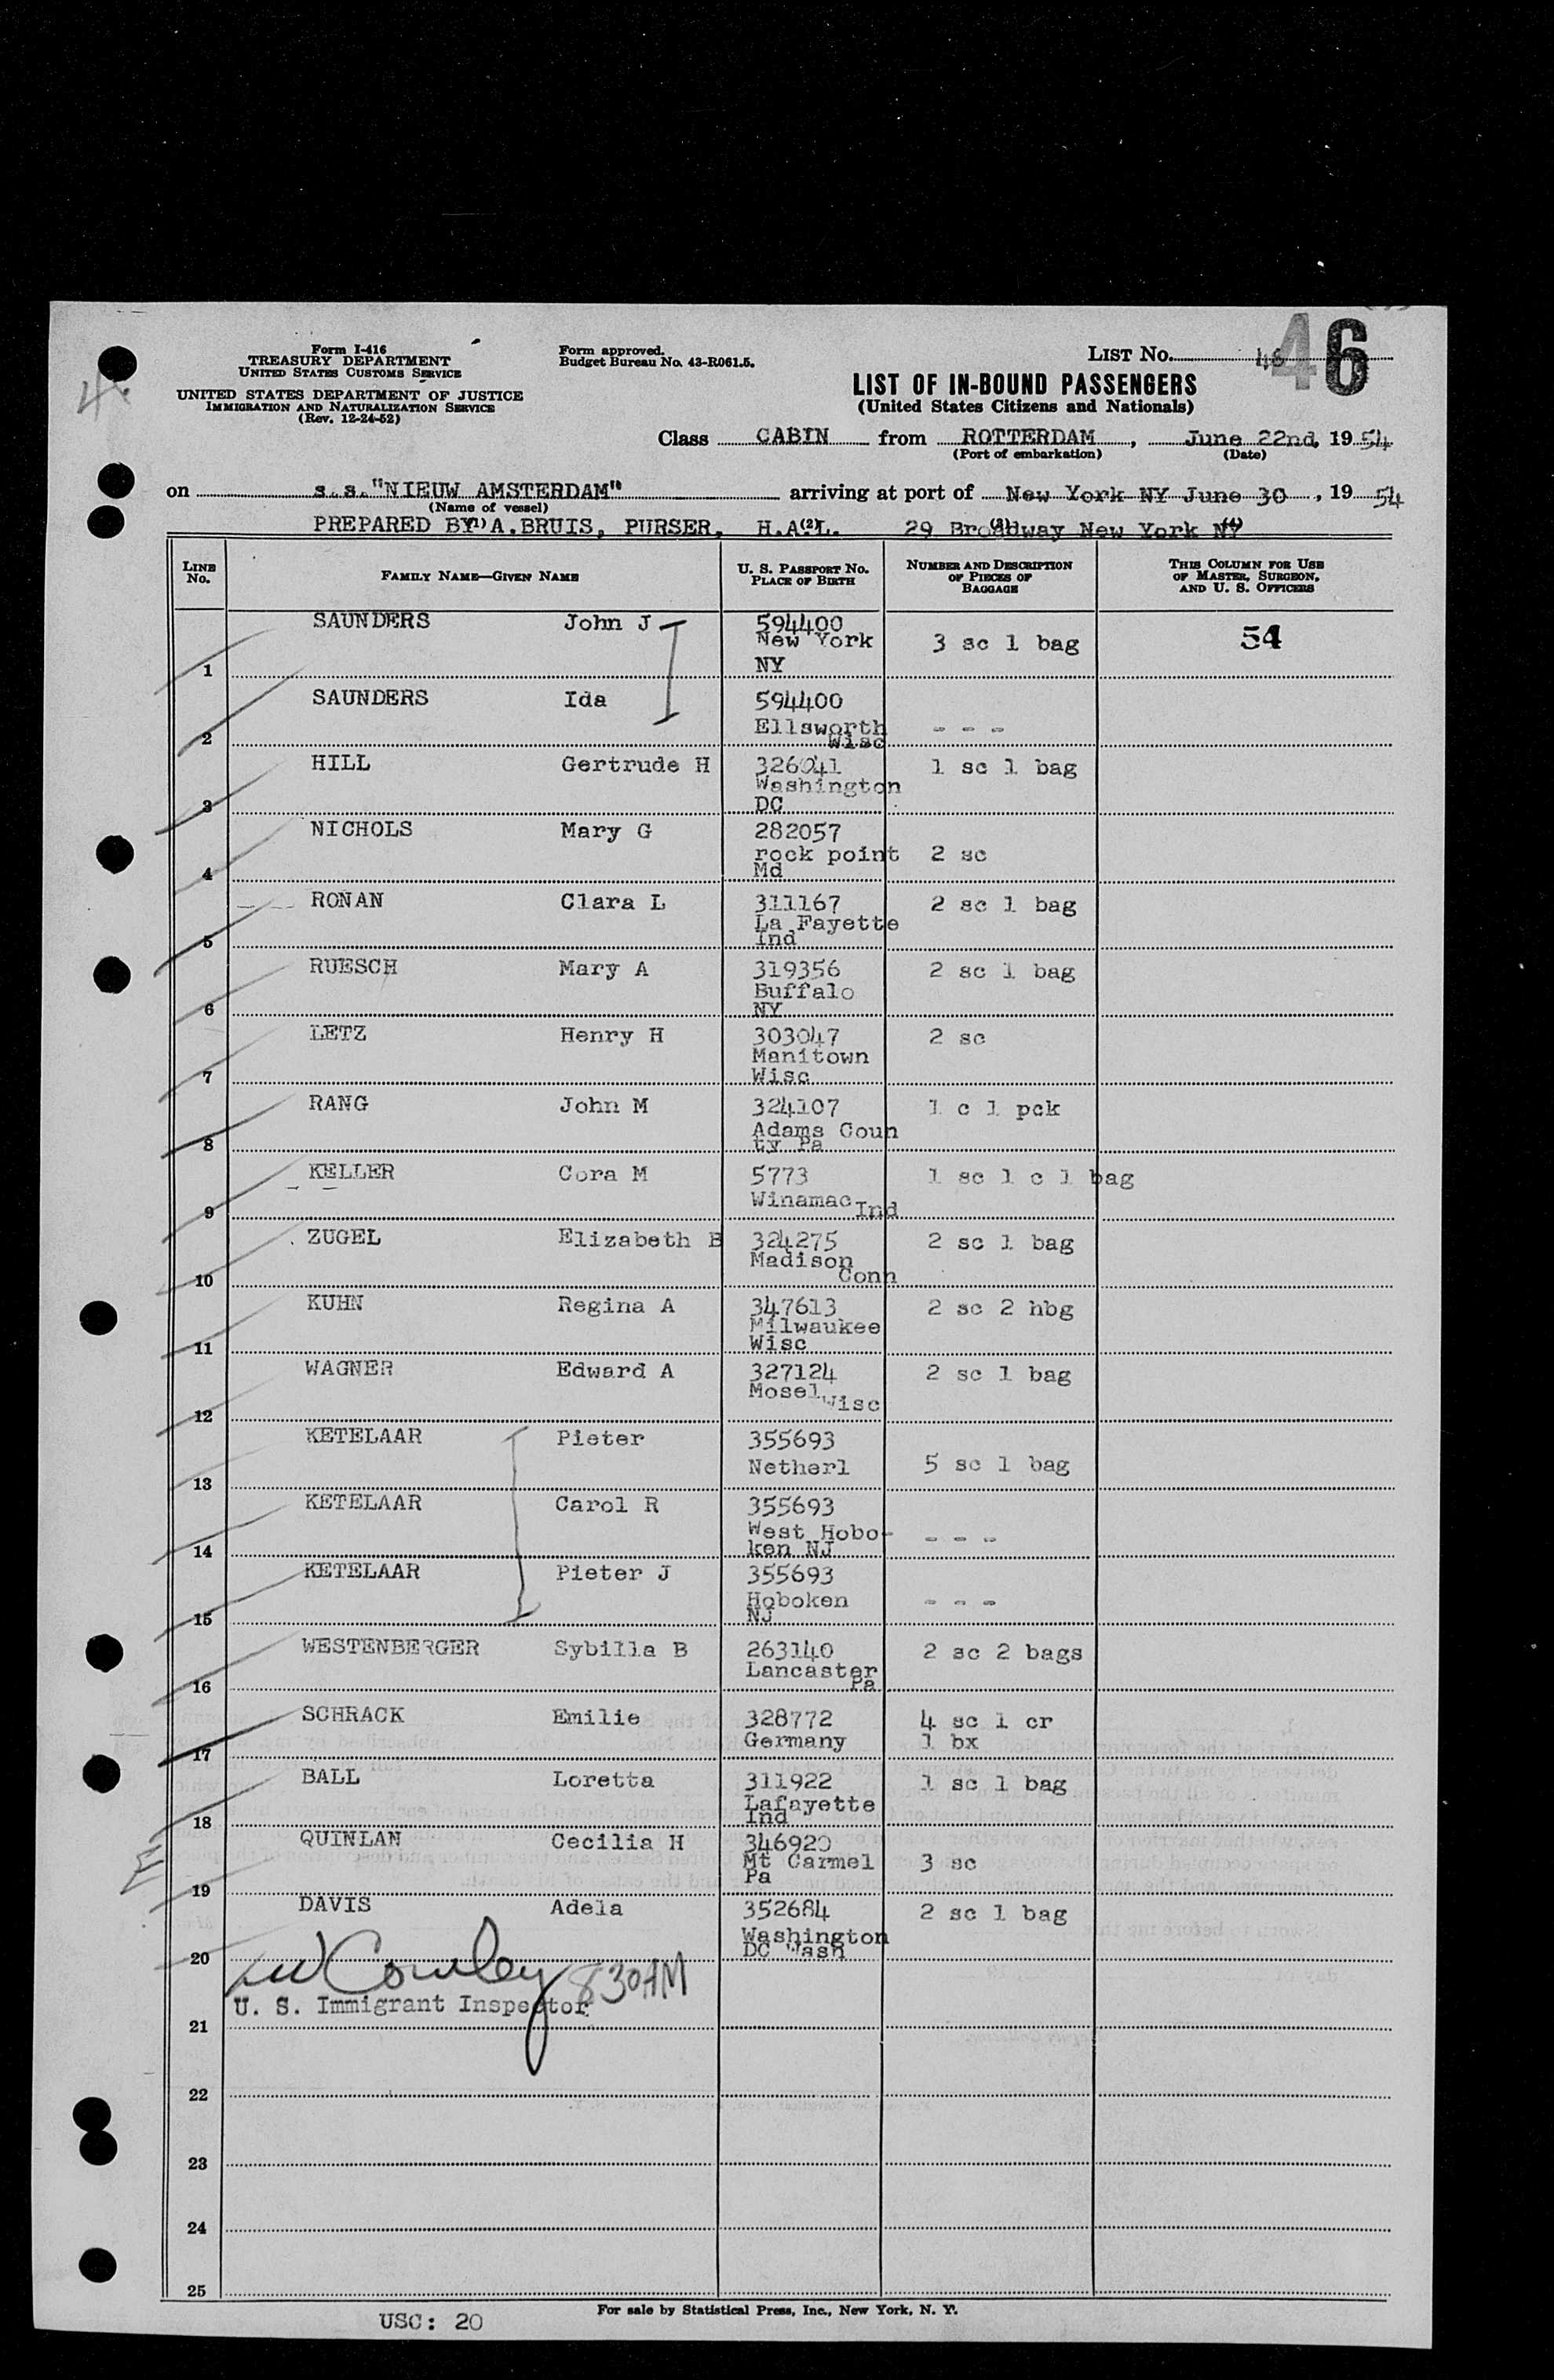 46
Form I-416
TREASURY DEPARTMENT
UNITED STATES CUSTOMS SERVICE
UNITED STATES DEPARTMENT OF JUSTICE
IMMIGRATION AND NATURALIZATION SERVICE
(Rev. 12-24-52)
Form approved.
Budget Bureau No. 43-R061.5.
LIST No. 46
LIST OF IN-BOUND PASSENGERS
(United States Citizens and Nationals)
Class CABIN from ROTTERDAM, June 22nd, 1954
(Port of embarkation) (Date)
on s.s."NIEUW AMSTERDAM" arriving at port of New York NY June 30, 1954
(Name of vessel)
PREPARED BY A.BRUIS, PURSER, H.A.L. 29 Broadway New York NY
(1) (2) (3) (4)
LINE No. FAMILY NAME—GIVEN NAME U. S. PASSPORT No. PLACE OF BIRTH NUMBER AND DESCRIPTION OF PIECES OF BAGGAGE THIS COLUMN FOR USE OF MASTER, SURGEON, AND U. S. OFFICERS
1 SAUNDERS John J 594400 New York NY 3 sc 1 bag 54
2 SAUNDERS Ida 594400 Ellsworth Wisc - - -
3 HILL Gertrude H 326041 Washington DC 1 sc 1 bag
4 NICHOLS Mary G 282057 rock point Md 2 sc
5 RONAN Clara L 311167 La Fayette Ind 2 sc 1 bag
6 RUESCH Mary A 319356 Buffalo NY 2 sc 1 bag
7 LETZ Henry H 303047 Manitown Wisc 2 sc
8 RANG John M 324107 Adams Coun ty Pa 1 c 1 pck
9 KELLER Cora M 5773 Winamac Ind 1 sc 1 c 1 bag
10 ZUGEL Elizabeth B 324275 Madison Conn 2 sc 1 bag
11 KUHN Regina A 347613 Milwaukee Wisc 2 sc 2 hbg
12 WAGNER Edward A 327124 Mosel Wisc 2 sc 1 bag
13 KETELAAR Pieter 355693 Netherl 5 sc 1 bag
14 KETELAAR Carol R 355693 West Hobo- ken NJ - - -
15 KETELAAR Pieter J 355693 Hoboken NJ - - -
16 WESTENBERGER Sybilla B 263140 Lancaster Pa 2 sc 2 bags
17 SCHRACK Emilie 328772 Germany 4 sc 1 cr 1 bx
18 BALL Loretta 311922 Lafayette Ind 1 sc 1 bag
19 QUINLAN Cecilia H 346920 Mt Carmel Pa 3 sc
20 DAVIS Adela 352684 Washington DC Wash 2 sc 1 bag
Cowley 830AM
U. S. Immigrant Inspector
21
22
23
24
25
For sale by Statistical Press, Inc., New York, N. Y.
USC: 20